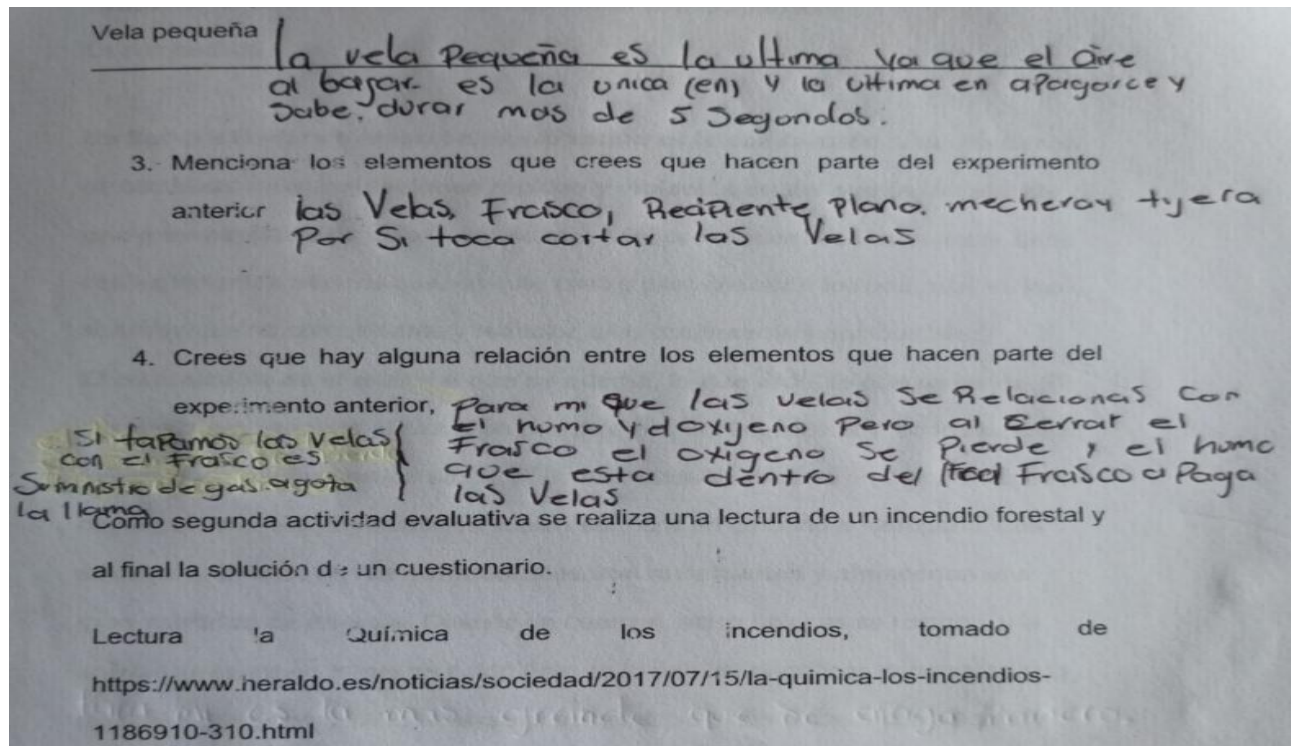 Vela pequeña
la vela Pequeña es la ultima ya que el aire
al bajar. es la unica (en) y la ultima en apargarce y
Sabe. durar mas de 5 Segondos.
3. Menciona los elementos que crees que hacen parte del experimento
anterior las Velas, Frasco, Recipiente, plano. mecheray tijera
Por Si toca cortar las Velas
4. Crees que hay alguna relación entre los elementos que hacen parte del
experimento anterior, Para mi que las velas se Relacionas con
El humo y doxijeno Pero al Cerrar el
Frasco el oxigeno se Pierde y el humo
que esta dentro del Frasco a Paga
las Velas
Si taPamos las velas
con el Frasco es
Suministro de gas. agota
la llama
Como segunda actividad evaluativa se realiza una lectura de un incendio forestal y
al final la solución de un cuestionario.
Lectura la Química de los incendios, tomado de
https://www.heraldo.es/noticias/sociedad/2017/07/15/la-quimica-los-incendios-
1186910-310.html